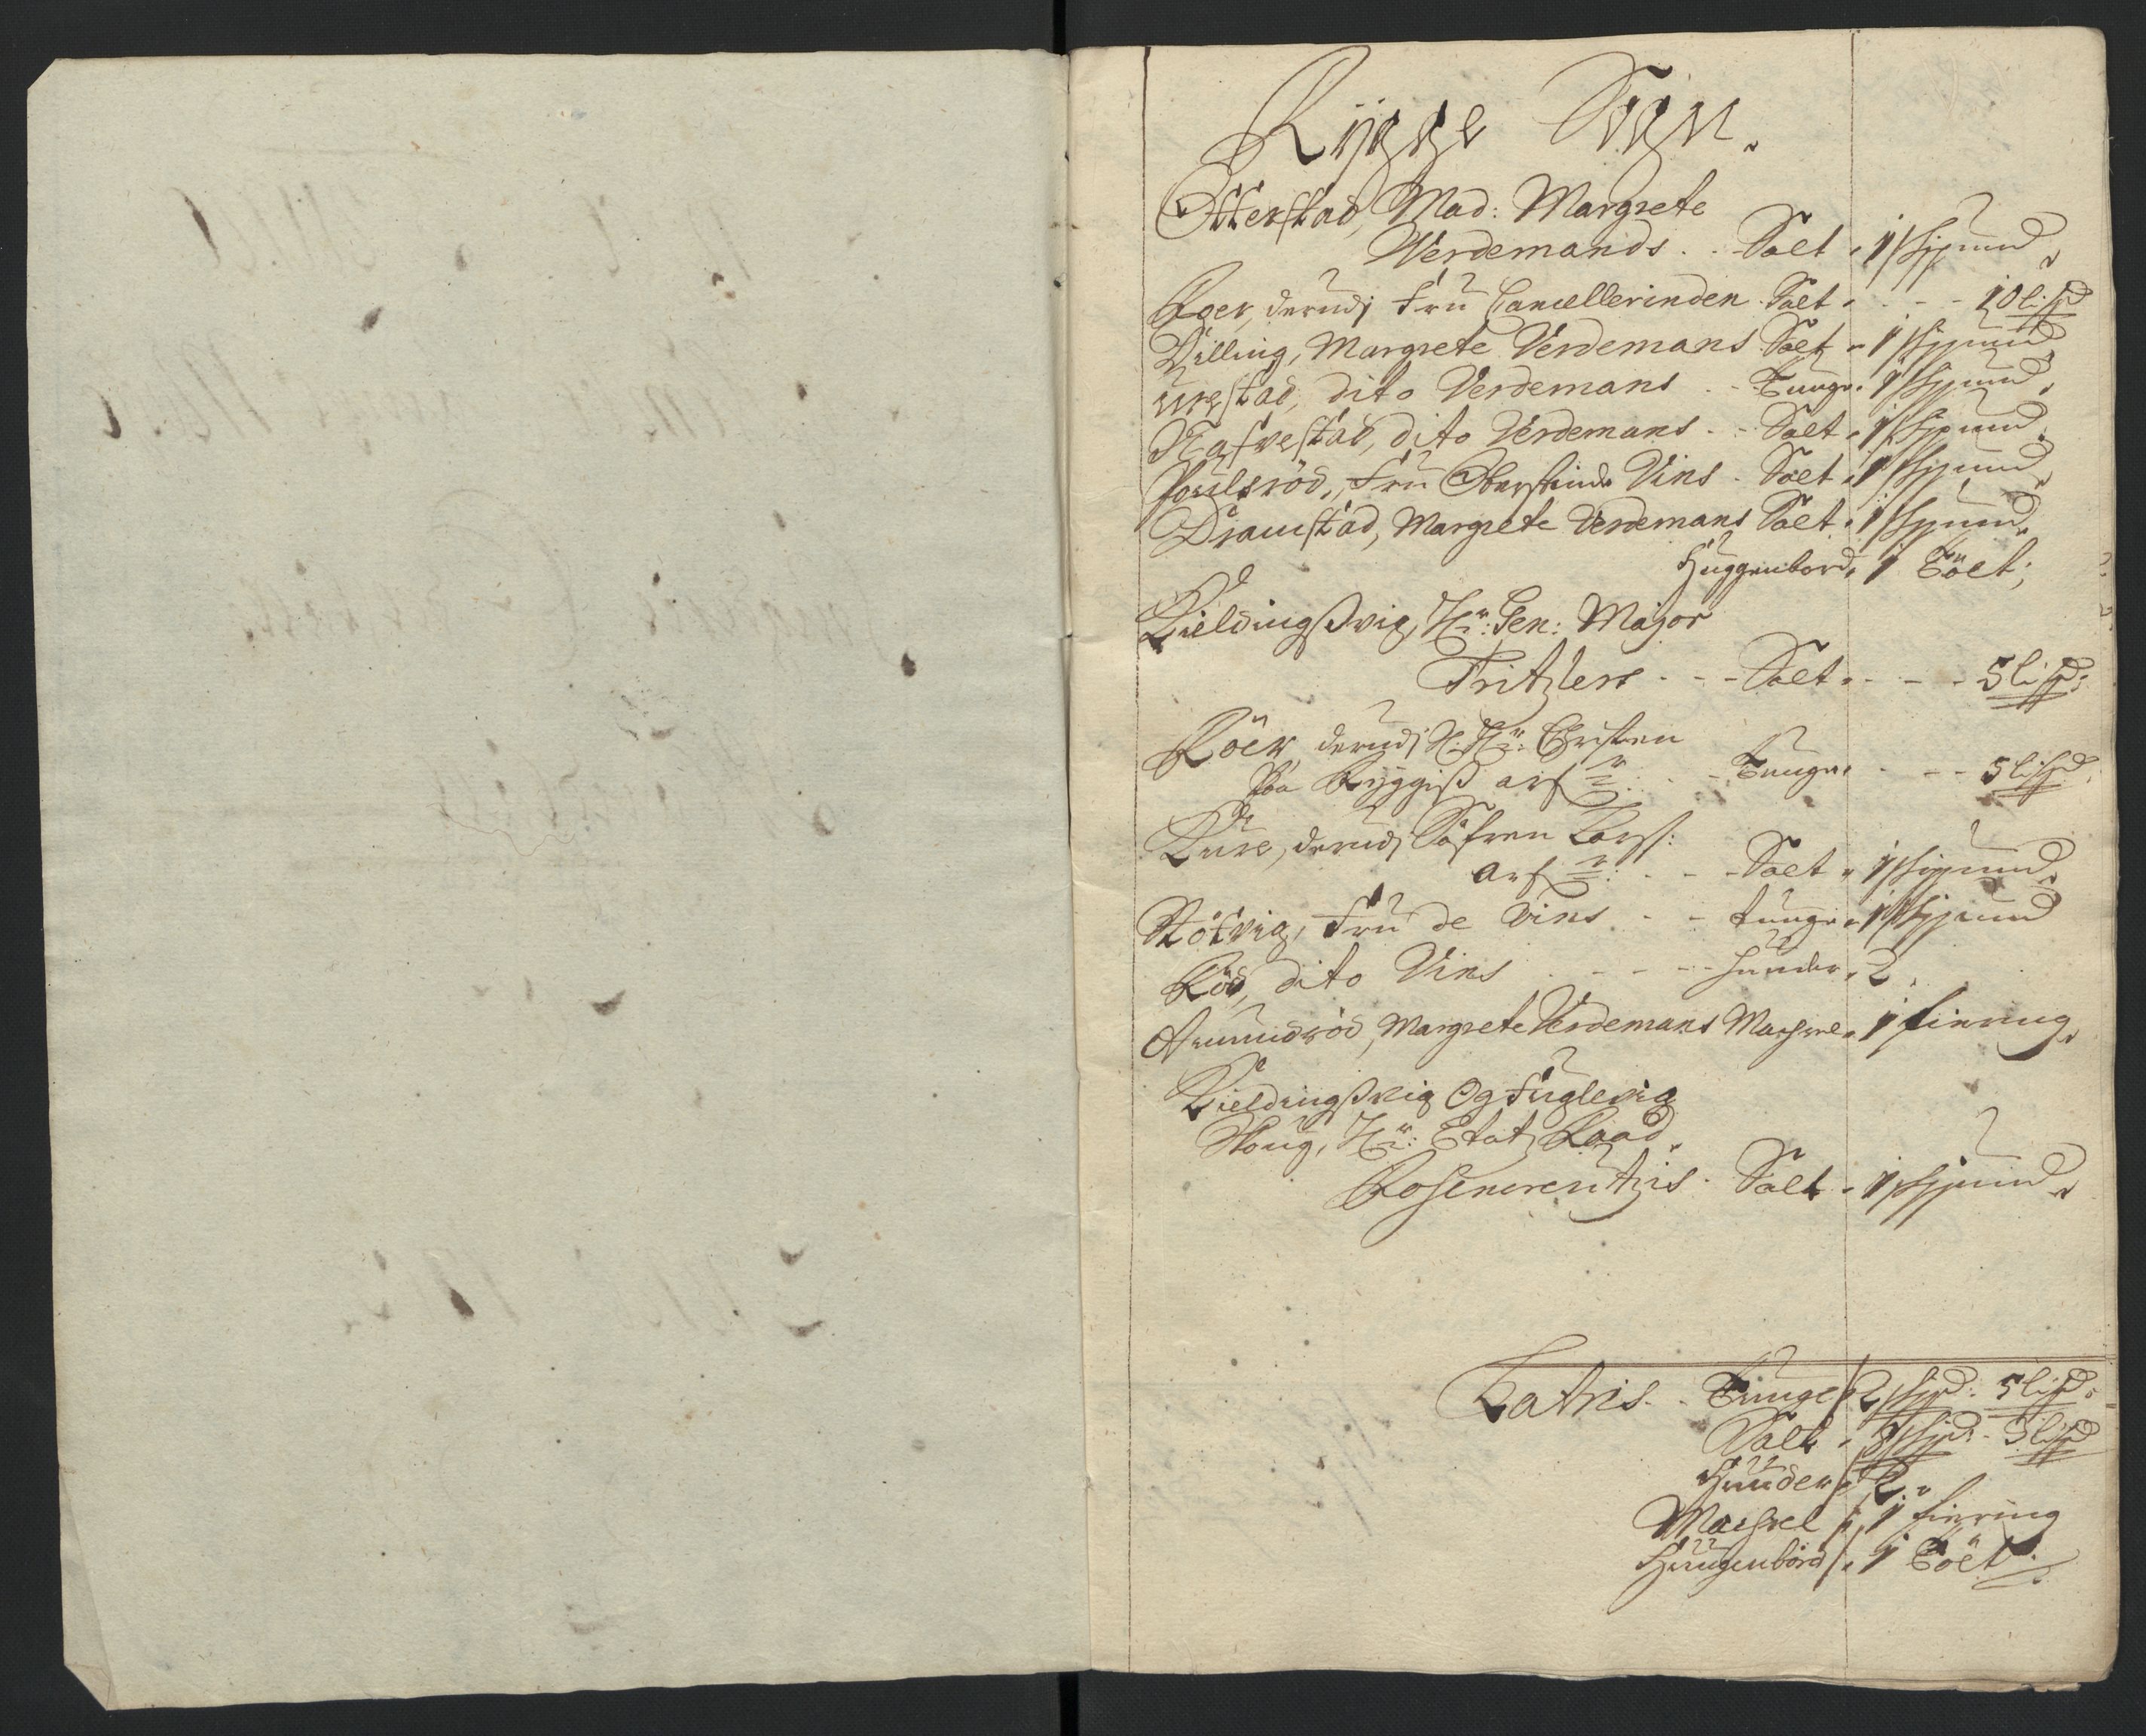 Rygge Sogn.
Otterstad, Mad: Margrete
Werdemands . . Salt . 1 skippund
Roer, derudj Fru Cancellerinden Salt . - - 10 lispd
Dilling, Margrete Verdemans Salt . 1 skippund
Urestad, dito Verdemans . . Tunge . 1 skippund
Nafvestad, dito Verdemans . - Salt . 1 skippund
Poulsröd, Fru Oberstinde Vins . Salt . 1 skippund
Dramstad, Margrete Verdemans Salt . 1 skippund
Huggenbord . 1 Tölt;
Kieldingsvig, Hr: Gen: Major
Fritzlers . - - Salt . - - 5 lispd:
Röer, derudj Hr: Christen
paa Ryggis arf . - Tunge . - - 5 lispd.
Kure, derudj Söfren Lars:
arf: . - - Salt . 1 skippund
Stötvig, Fru de Vins - - tunge . 1 skippund
Röd, dito Vins . - - - huuder . 2.
Amundröd, Margrete Verdemans Machrel . 1 fiering.
Kieldingsvig Og Fuglevig
Skoug, Hr: Etatz Raad.
Rosencreutzis . Salt . 1 skippund.
Latris . . Tunge 2 skpd: 5 lispd:
Salt . skpd: - 5 lispd
Huuder . 2.
Machrel . 1 fiering
Huugenbord . 1 Tölt.